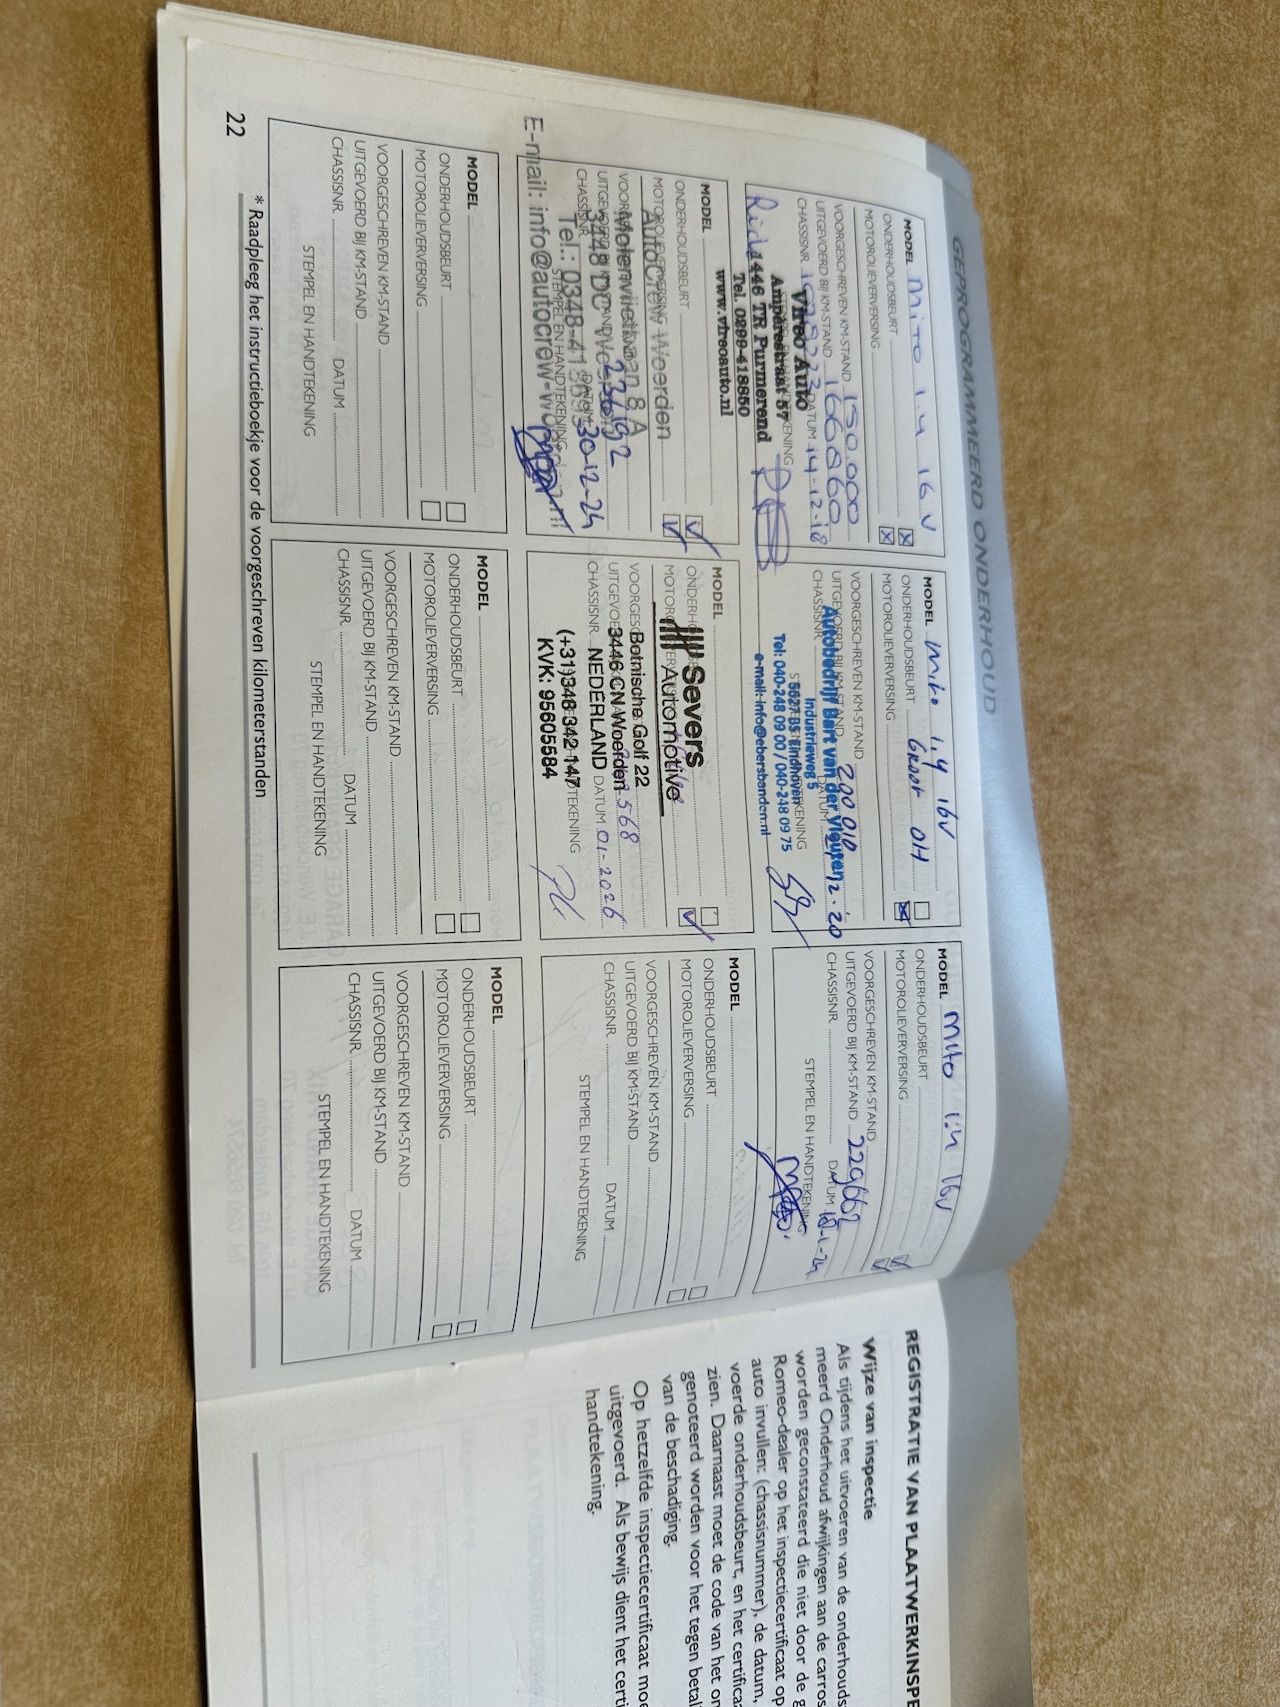 GEPROGRAMMEERD ONDERHOUD
MODEL Mito 1.4 16V
ONDERHOUDSBEURT
MOTOROLIEVERVERSING
VOORGESCHREVEN KM-STAND 150.000
UITGEVOERD BIJ KM-STAND 166860
CHASSISNR. DATUM 14-12-18
Vireo Auto
Ampèrestraat 57
1446 TR Purmerend
Tel. 0299-418850
www.vireoauto.nl
MODEL Mito 1.4 16V
ONDERHOUDSBEURT Groot OH
MOTOROLIEVERVERSING
VOORGESCHREVEN KM-STAND
UITGEVOERD BIJ KM-STAND 200 010
CHASSISNR. DATUM 12.20
Autobedrijf Bart van der Vleuten
Industrieweg 5
5627 BS Eindhoven
Tel: 040-248 09 00 / 040-248 09 75
e-mail: info@ebersbanden.nl
MODEL Mito 1.4 16V
ONDERHOUDSBEURT
MOTOROLIEVERVERSING
VOORGESCHREVEN KM-STAND
UITGEVOERD BIJ KM-STAND 229662
CHASSISNR. DATUM -1-24
STEMPEL EN HANDTEKENING
MODEL
ONDERHOUDSBEURT
MOTOROLIEVERVERSING
AutoCrew Woerden
Molenvlietbaan 8 A
3448 DC Woerden
CHASSISNR. DATUM 30-12-24
STEMPEL EN HANDTEKENING
Tel.: 0348-41
E-mail: info@autocrew-woerden.nl
MODEL
Severs
Automotive
Botnische Golf 22
3446 CN Woerden
CHASSISNR. NEDERLAND DATUM 01-2026
(+31)348 342 147
KVK: 95605584
MODEL
ONDERHOUDSBEURT
MOTOROLIEVERVERSING
VOORGESCHREVEN KM-STAND
UITGEVOERD BIJ KM-STAND
CHASSISNR. DATUM
STEMPEL EN HANDTEKENING
MODEL
ONDERHOUDSBEURT
MOTOROLIEVERVERSING
VOORGESCHREVEN KM-STAND
UITGEVOERD BIJ KM-STAND
CHASSISNR. DATUM
STEMPEL EN HANDTEKENING
MODEL
ONDERHOUDSBEURT
MOTOROLIEVERVERSING
VOORGESCHREVEN KM-STAND
UITGEVOERD BIJ KM-STAND
CHASSISNR. DATUM
STEMPEL EN HANDTEKENING
MODEL
ONDERHOUDSBEURT
MOTOROLIEVERVERSING
VOORGESCHREVEN KM-STAND
UITGEVOERD BIJ KM-STAND
CHASSISNR. DATUM
STEMPEL EN HANDTEKENING
* Raadpleeg het instructieboekje voor de voorgeschreven kilometerstanden
22
REGISTRATIE VAN PLAATWERKINSPE
Wijze van inspectie
Als tijdens het uitvoeren van de onderhouds
meerd Onderhoud afwijkingen aan de carros
worden geconstateerd die niet door de g
Romeo-dealer op het inspectiecertificaat op
auto invullen: (chassisnummer), de datum,
voerde onderhoudsbeurt, en het certifica
zien. Daarnaast moet de code van het on
genoteerd worden voor het tegen betal
van de beschadiging.
Op hetzelfde inspectiecertificaat moe
uitgevoerd. Als bewijs dient het certi
handtekening.